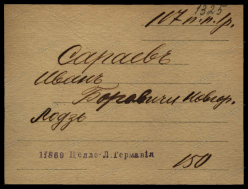 1325
107 п.п. гр.
Сараевъ
Иванъ
Боровичи Новгор.
Лодзь
11869 Целле-Л. Германія
150